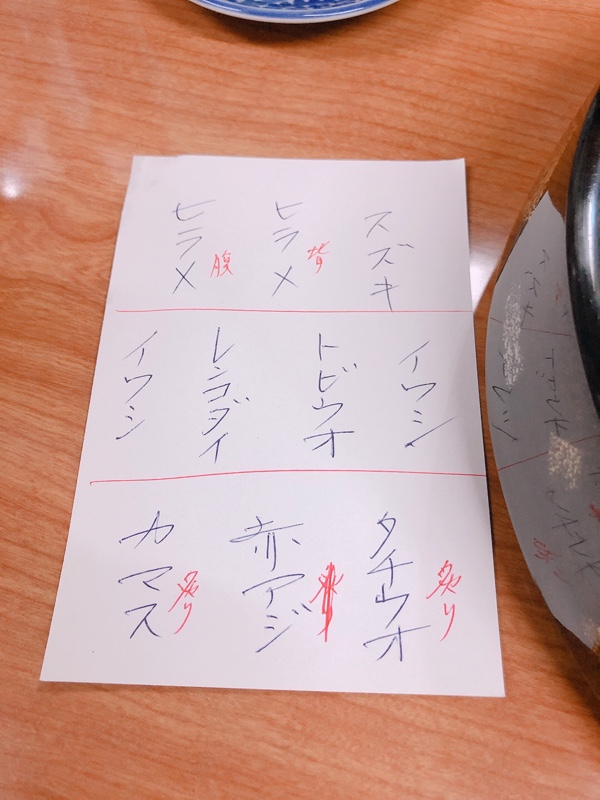 スズキ
ヒラメ 背
ヒラメ 腹
イワシ
トビウオ
レンコダイ
イワシ
タチウオ 炙り
赤アジ
カマス 炙り